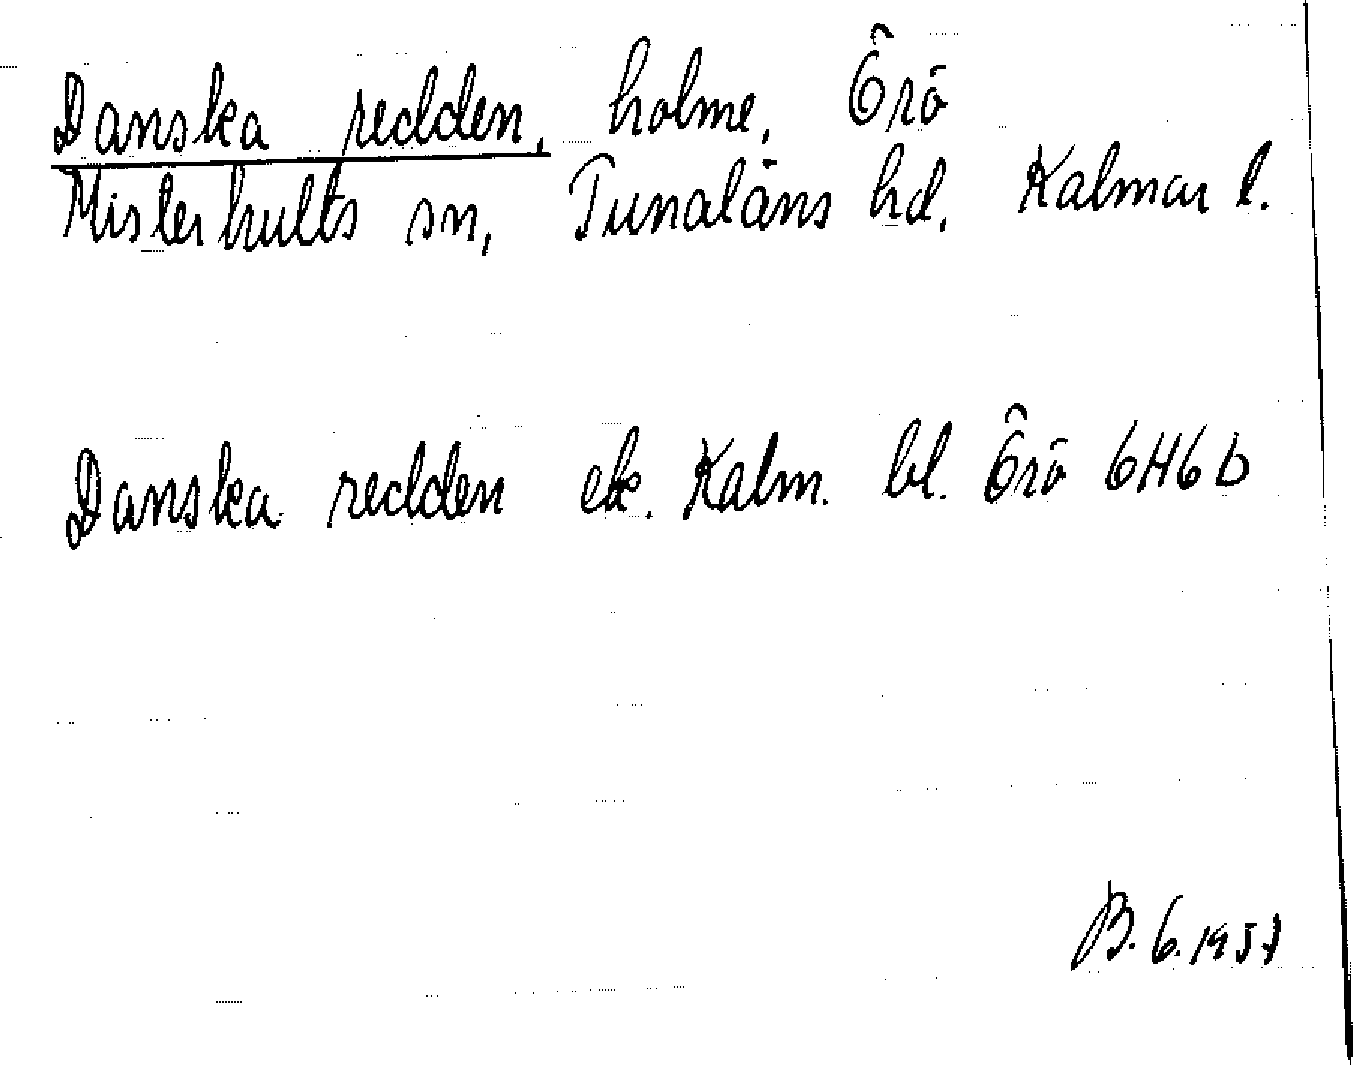 Danska redden, holme, Örö
Misterhults sn, Tunaläns hd. Kalmar l.
Danska redden ek. Kalm. bl. Örö 6H6b
B. G. 1951